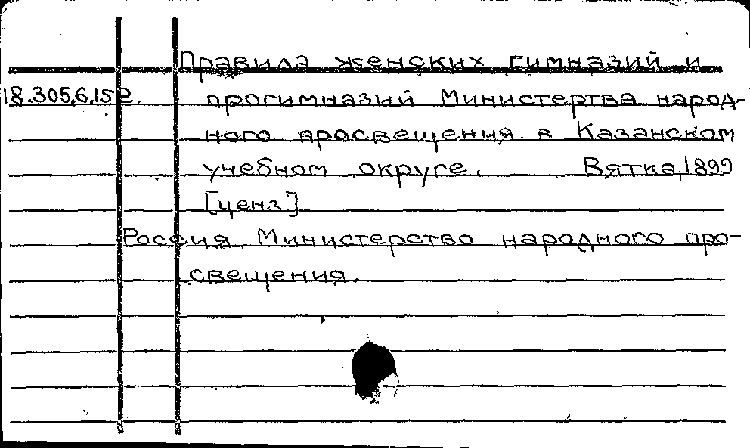 Правила женских гимназий и
18.305.6.152. прогимназий Министертва народ-
ного просвещения в Казанском
учебном округе. Вятка, 1899
[ценз]
Россия. Министерство народного про-
свещения.